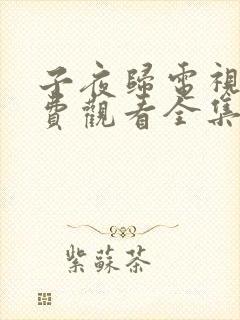 子夜歸電視
費觀看全集
紫蘇茶